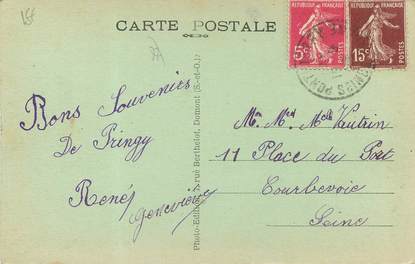 CARTE POSTALE
RÉPUBLIQUE FRANÇAISE
5c
POSTES
RÉPUBLIQUE FRANÇAISE
15c
POSTES
PONT
Bons Souvenirs
De Pringy
René
Geneviève
Photo-Edition, rue Berthelot, Domont (S.-et-O.)
Mr Md Mlle Vautrin
11 Place du Port
Courbevoie
Seine